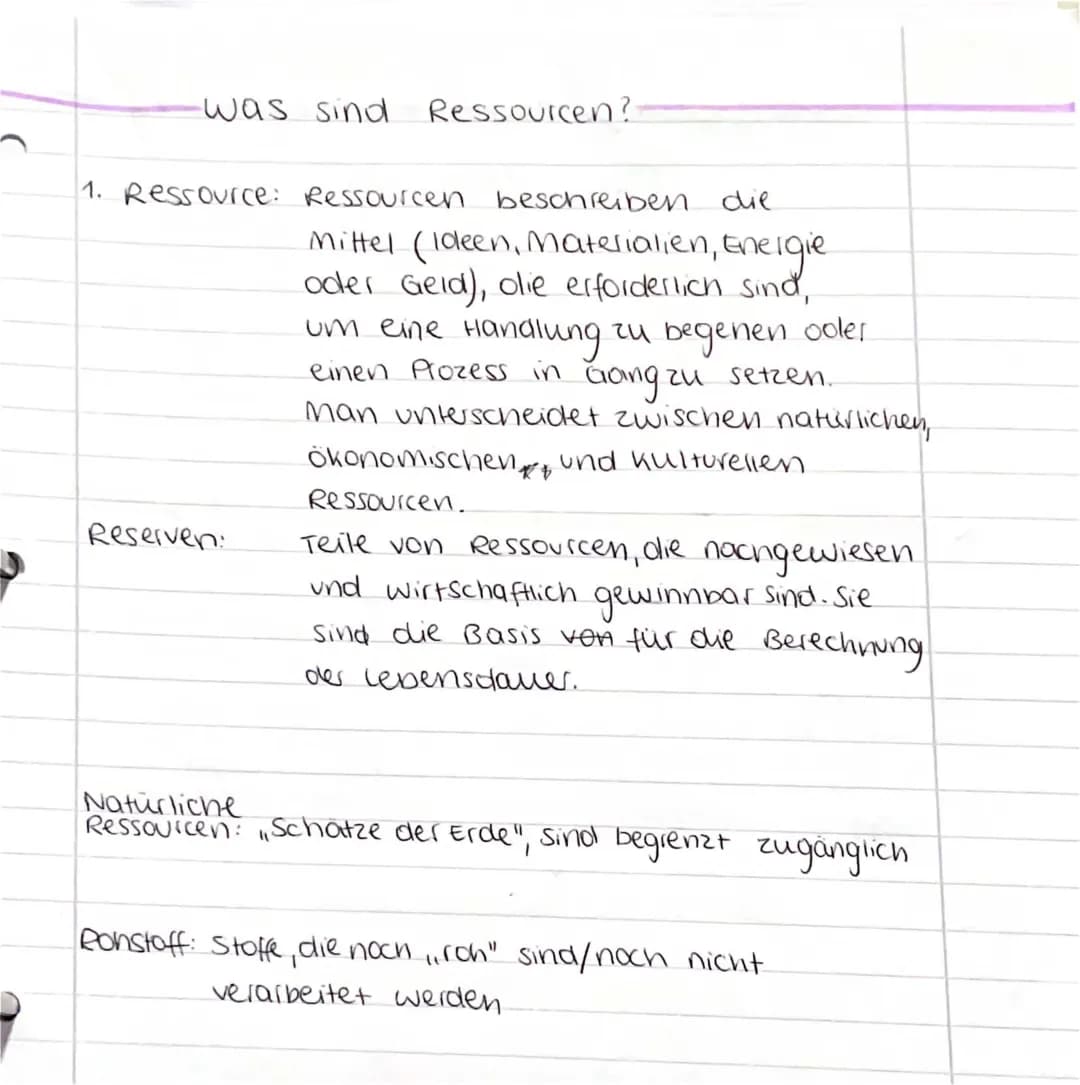 Was sind Ressourcen?
1. Ressource: Ressourcen beschreiben die
Mittel (Ideen, Materialien, Energie
oder Geld), die erforderlich sind,
um eine Handlung zu begenen oder
einen Prozess in Gang zu setzen.
Man unterscheidet zwischen natürlichen,
ökonomischen, und kulturellen
Ressourcen.
Reserven: Teile von Ressourcen, die nachgewiesen
und wirtschaftlich gewinnbar sind. Sie
sind die Basis von für die Berechnung
der Lebensdauer.
Natürliche
Ressourcen: „Schätze der Erde", sind begrenzt zugänglich
Rohstoff: Stoffe, die noch „roh" sind/noch nicht
verarbeitet werden